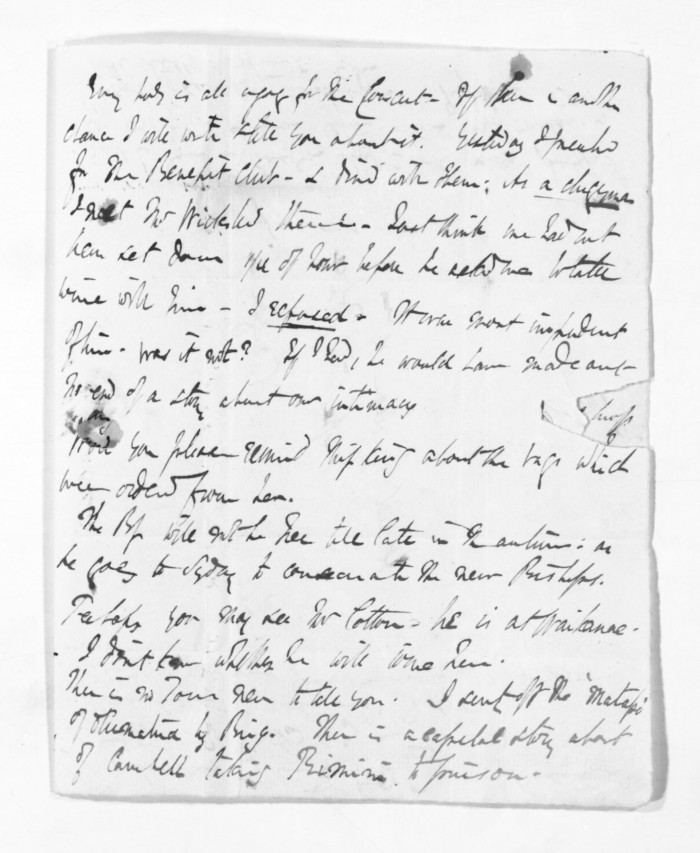 Every body is all agog for the Concert - If there is another
chance I will write & tell you about it. Yesterday I preached
for the Benefit Club - & dined with them; As a clergyman
I met Mr Wicksteed there - Just think we had not
been set down ½ of hour before he asked me to take
wine with him - I refused - It was most impudent
of him - was it not? If I had, he would have made out
no end of a story about our intimacy
Would you please remind Miss King about the bags which
were ordered from her.
The Bp will not be here till late in the autumn: as
he goes to Sydney to consecrate the new Bishops.
Perhaps you may see Mr Cotton - he is at Waikanae.
I don't know whether he will come here.
There is no Town news to tell you. I sent off the "Matapo"
of by Brig. There is a capital story about
of Campbell taking to prison -